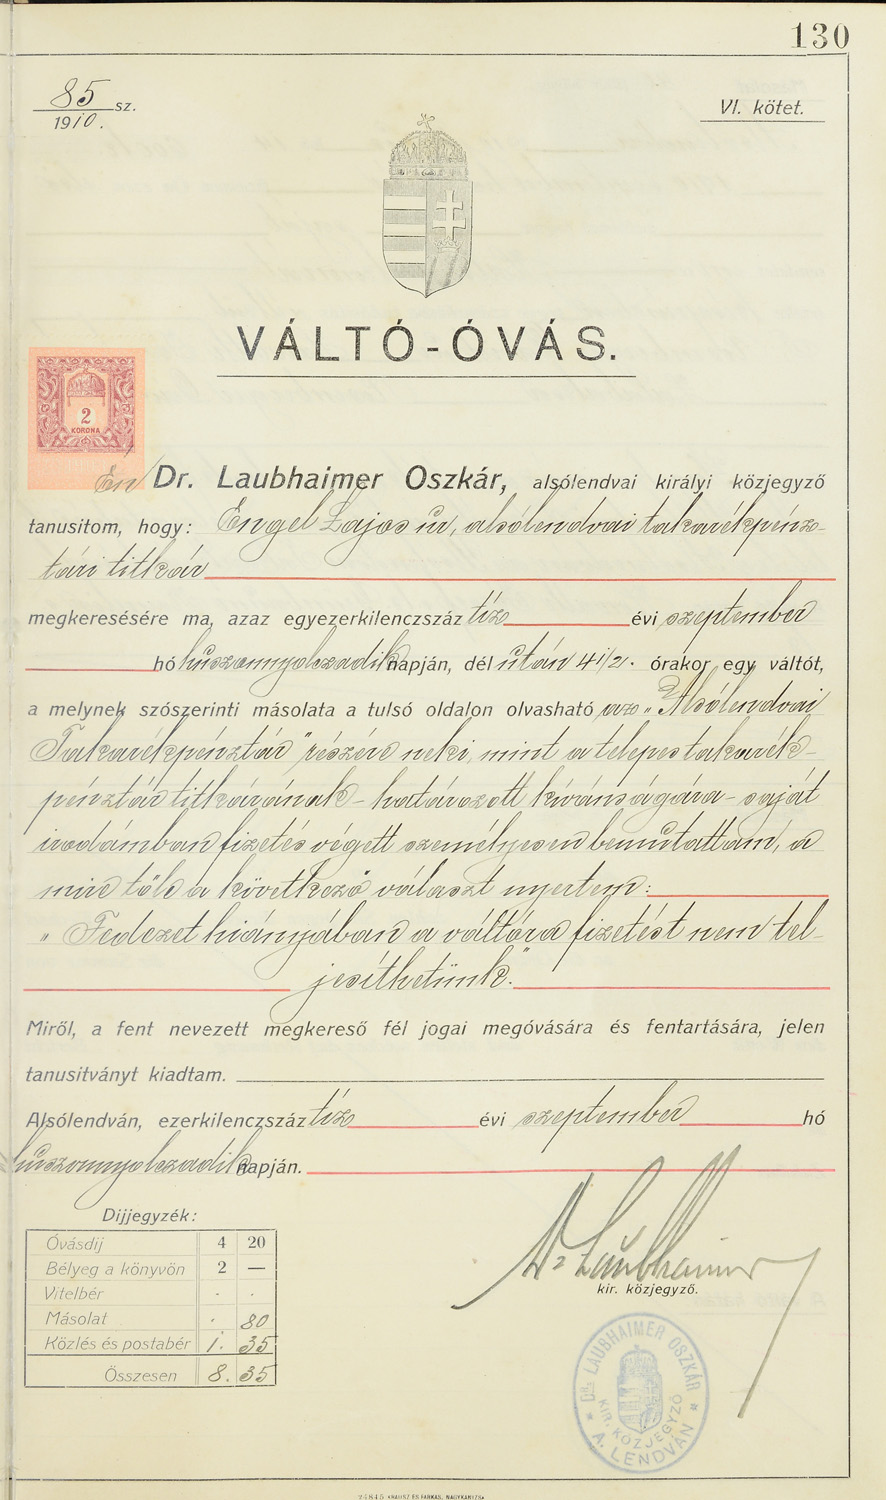 130
85 sz.
1910.
VI. kötet.
VÁLTÓ-ÓVÁS.
2
KORONA
Én Dr. Laubhaimer Oszkár, alsólendvai királyi közjegyző
tanusitom, hogy: Engel Lajos úr, alsólendvai takarékpénz-
tári titkár
megkeresésére ma, azaz egyezerkilenczszáz tíz évi szeptember
hó huszonnyolczadik napján, dél után 4 1/2. órakor egy váltót,
a melynek szószerinti másolata a tulsó oldalon olvasható az „Alsólendvai
Takarékpénztár" részére neki, mint a telepes takarék-
pénztár titkárának - határozott kívánságára - saját
irodámban fizetés végett személyesen bemutattam, a
mire tőle a következő választ nyertem:
„Fedezet hiányában a váltóra fizetést nem tel-
jesíthetünk."
Miről, a fent nevezett megkereső fél jogai megóvására és fentartására, jelen
tanusitványt kiadtam.
Alsólendván, ezerkilenczszáz tíz évi szeptember hó
huszonnyolczadik napján.
Dijjegyzék:
Óvásdij 4 20
Bélyeg a könyvön 2 —
Vitelbér . .
Másolat . 80
Közlés és postabér 1. 35
Összesen 8. 35
Dr Laubhaimer
kir. közjegyző.
Dr. LAUBHAIMER OSZKÁR
KIR. KÖZJEGYZŐ
* A. LENDVÁN *
24845 KRAUSZ ÉS FARKAS, NAGYKANIZSA